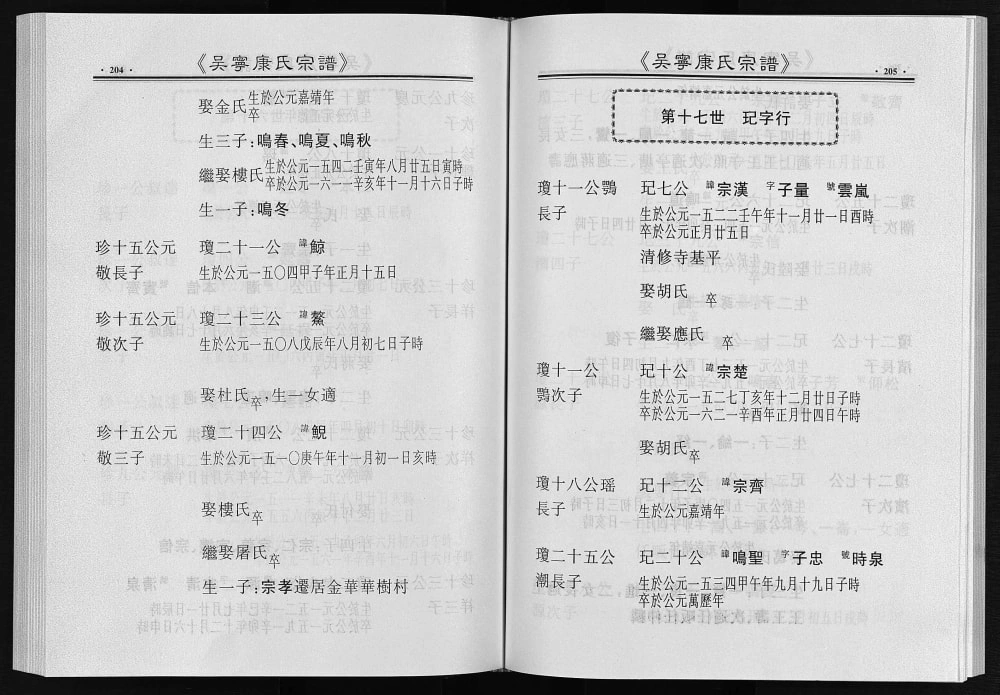 《吴寧康氏宗譜》
· 204 ·
娶金氏 生於公元嘉靖年
卒
生三子：鳴春、鳴夏、鳴秋
繼娶樓氏 生於公元一五四二壬寅年八月廿五日寅時
卒於公元一六一一辛亥年十一月十六日子時
生一子：鳴冬
珍十五公元 瓊二十一公 諱鯨
敬長子 生於公元一五〇四甲子年正月十五日
珍十五公元 瓊二十三公 諱鰲
敬次子 生於公元一五〇八戊辰年八月初七日子時
娶杜氏 卒 生一女適
珍十五公元 瓊二十四公 諱鯢
敬三子 生於公元一五一〇庚午年十一月初一日亥時
娶樓氏 卒
繼娶屠氏 卒
生一子：宗孝遷居金華華樹村
《吴寧康氏宗譜》
· 205 ·
第十七世 玘字行
瓊十一公鶚 玘七公 諱宗漢 字子量 號雲嵐
長子 生於公元一五二二壬午年十一月廿一日酉時
卒於公元正月廿五日
清修寺基平
娶胡氏 卒
繼娶應氏 卒
瓊十一公 玘十公 諱宗楚
鶚次子 生於公元一五二七丁亥年十二月廿日子時
卒於公元一六二一辛酉年正月廿四日午時
娶胡氏 卒
瓊十八公瑶 玘十二公 諱宗齊
長子 生於公元嘉靖年
瓊二十五公 玘二十二公 諱鳴聖 字子忠 號時泉
潮長子 生於公元一五三四甲午年九月十九日子時
卒於公元萬歷年